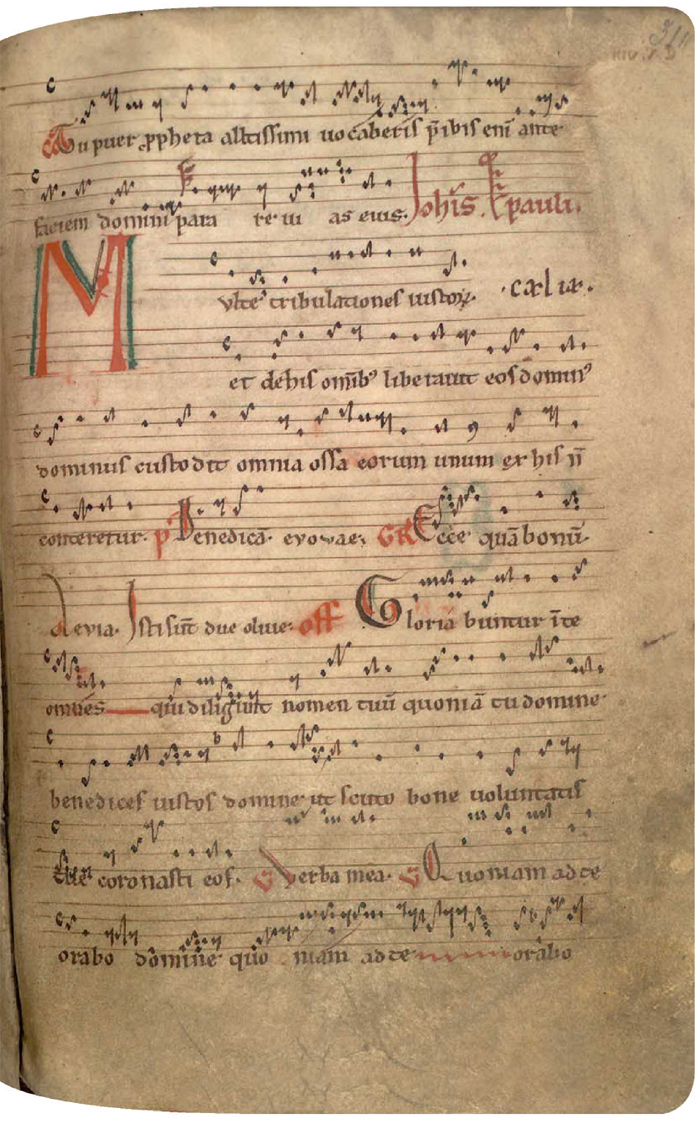 Tu puer ꝓpheta altissimi uocaberis p̄ibis enī ante
faciem domini para re ui as eius. Joh̄is. & pauli.
Multe tribulationes iustoꝝ.
et de his omībꝰ liberauit eos dominꝰ
dominus custodit omnia ossa eorum unum ex his n̄
conteretur. p̄ Benedicā. evovae. GR Ecce quā bonū.
Aevia. Isti sūt due oliue. off Gloria buntur ī te
omnes qui diligunt nomen tuū quoniā tu domine
benedices iustos domine ut scuto bone uoluntatis
tue coronasti eos. V Verba mea. V Quoniam ad te
orabo domine quo niam ad te orabo